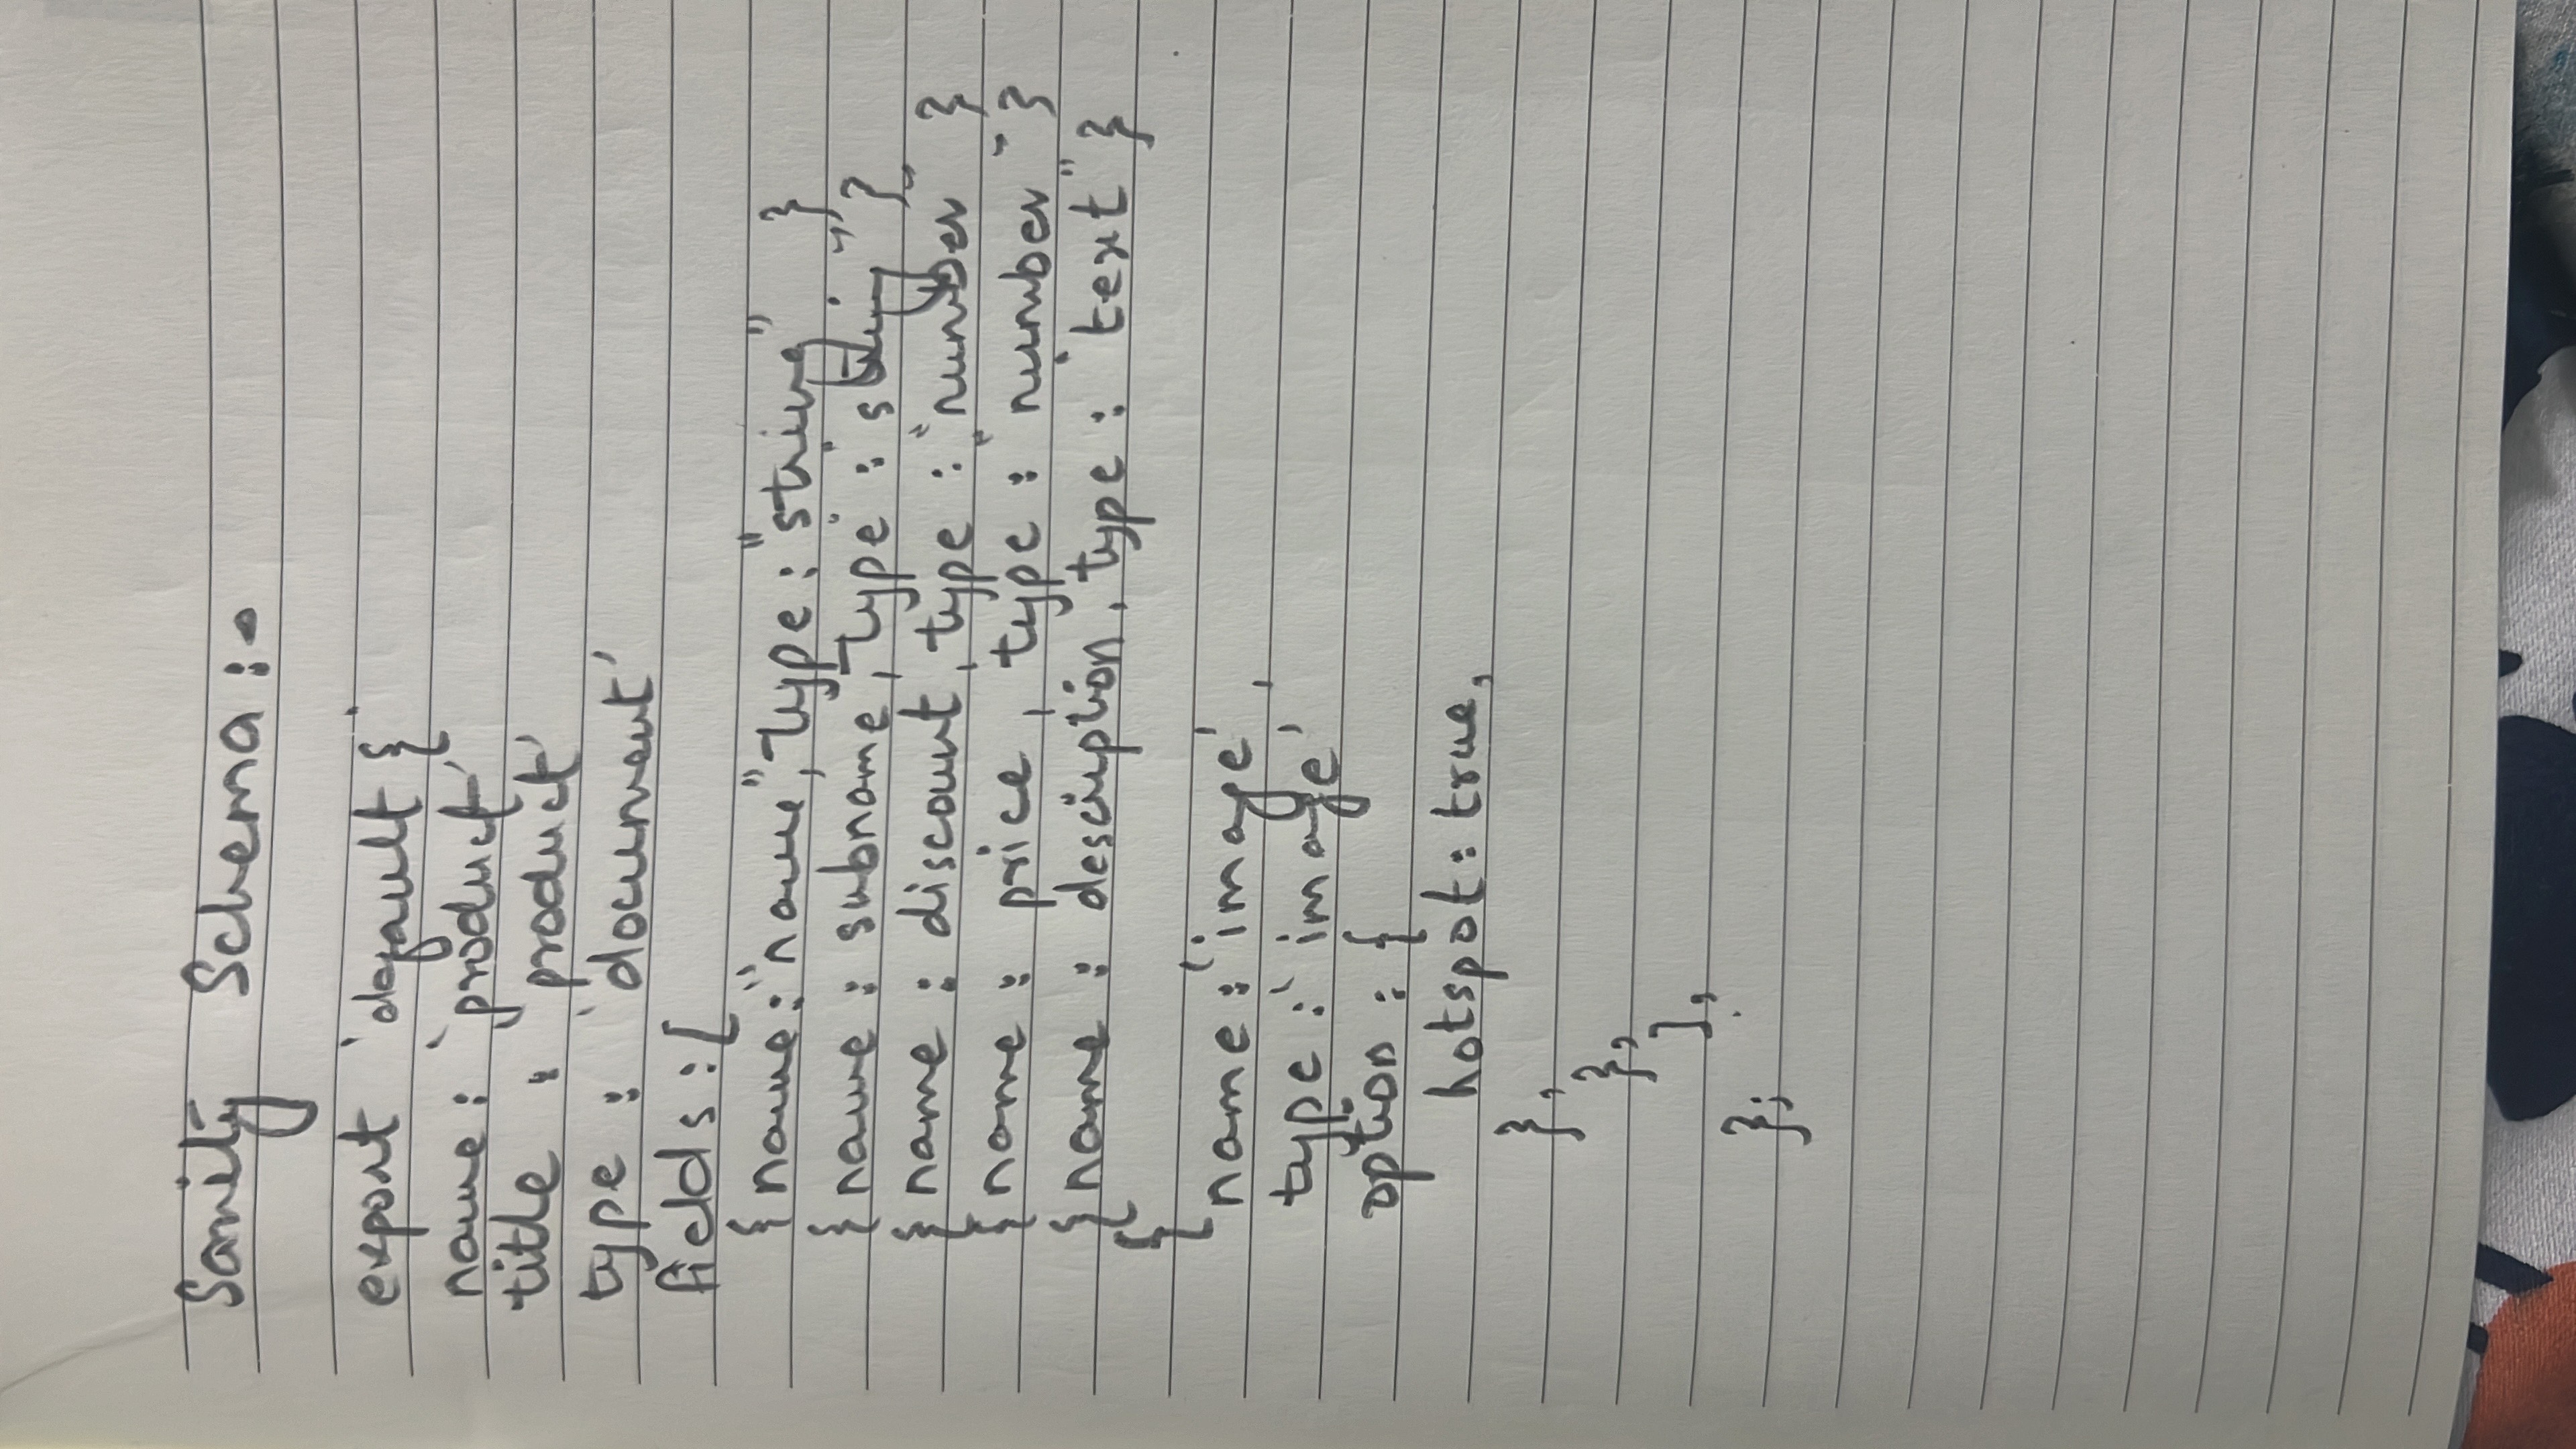 Sanity Schema :-
export 'default {
name : 'product'
title : 'product'
type : 'document'
fields : [
{ name : "name", type : "string" }
{ name : subname, type : "string" }
{ name : discount, type : "number" }
{ name : price, type : "number" }
{ name : description, type : "text" }
{
name : 'image',
type : 'image'
option : {
hotspot : true,
},
},
],
};